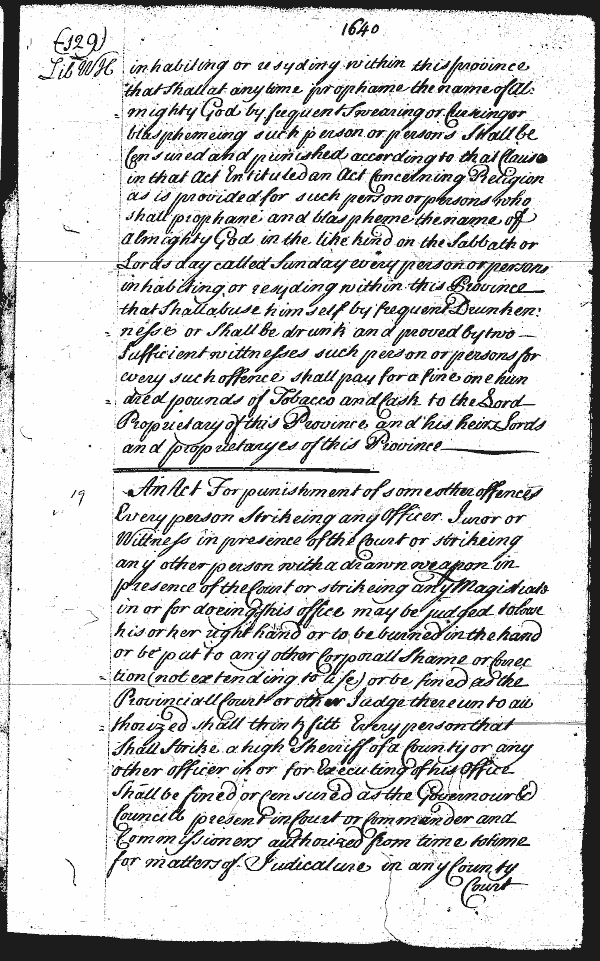 1640
(129)
Lib WH
inhabiting or resyding within this province
that shall at any time prophame the name of Al:
mighty God by frequent Swearing or Curseing or
blasphemeing such person or persons Shall be
Censured and punished according to that Clause
in that Act Entituled an Act Concerning Religion
as is provided for such person or persons who
shall prophane and blaspheme the name of
Almighty God in the like kind on the Sabbath or
Lords day called Sunday every person or persons
inhabiting or resyding within this Province
that Shall abuse himself by frequent Drunken:
nesse or Shall be drunk and proved by two
Sufficient wittnesses such person or persons for
every such offence shall pay for a fine one hun
dred pounds of Tobacco and Cask to the Lord
Proprietary of this Province and his heires Lords
and proprietaryes of this Province
19
An Act For punishment of some other offences
Every person Strikeing any Officer Juror or
Wittness in presence of the Court or strikeing
any other person with a drawn weapon in
presence of the Court or strikeing any Magistrate
in or for doeing his office may be judged to lose
his or her right hand or to be burned in the hand
or be put to any other Corporall Shame or Correc
tion (not extending to life) or be fined as the
Provinciall Court or other Judge thereunto au
thorized shall think fitt Every person that
Shall Strike a high Sherriff of a County or any
other officer in or for Executing of his Office
Shall be fined or Censured as the Governour &
Councill present in Court or Commander and
Commissioners authorized from time to time
for matters of Judicature in any County
Court